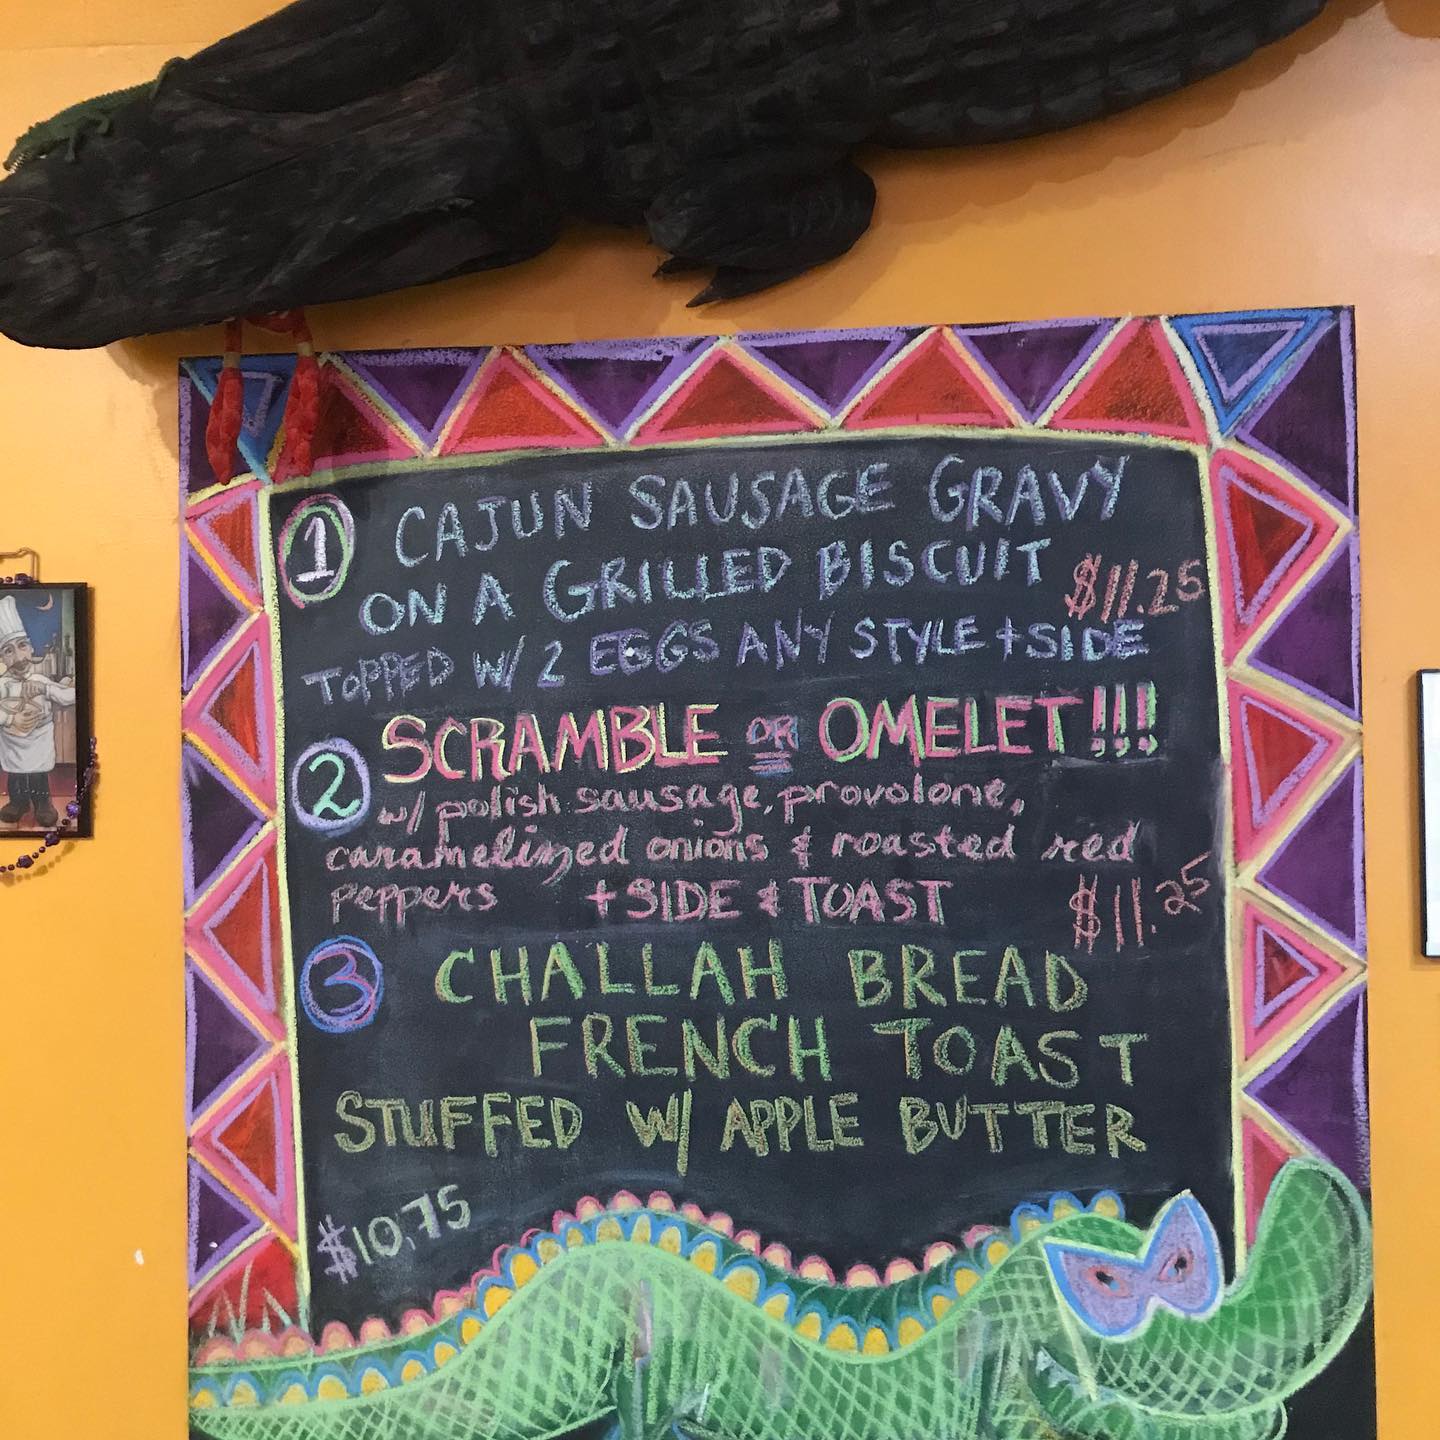 1 CAJUN SAUSAGE GRAVY
ON A GRILLED BISCUIT $11.25
TOPPED W/ 2 EGGS ANY STYLE + SIDE
2 SCRAMBLE OR OMELET!!!
w/ polish sausage, provolone,
caramelized onions & roasted red
peppers + SIDE & TOAST $11.25
3 CHALLAH BREAD
FRENCH TOAST
STUFFED W/ APPLE BUTTER
$10.75